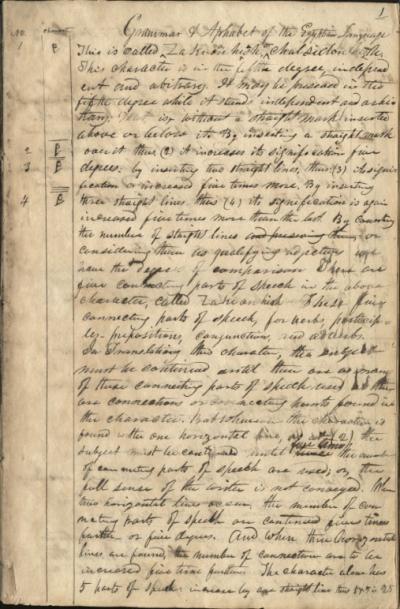 1
Grammar & Alphabet of the Egyptian Language
No. character
1 This is called Za Ki oan hiish, chalsidon hish.
This character is in the fifth degree, independ
ent and arbitrary. It may be preserved in the
fifth degree while it stands independent and arbi
trary: That is, without a straight mark inserted
above or below it. By inserting a straight mark
2 over it thus (2) it increases its signification five
3 degrees: by inserting two straight lines, thus: (3) its signi-
fication is increased five times more. By inserting
4 three straight lines thus (4) its signification is again
increased five times more than the last. By counting
the number of straight lines and preserving them, or
considering them as qualifying adjectives we
have the degrees of comparison There are
five connecting parts of speech in the above
character, called Za ki oan hish These five
connecting parts of speech, for verbs, particip-
les-prepositions, conjunctions, and adverbs.
In Translating this character, this subject
must be continued until there are as many
of these connecting parts of speech used as there
are connections or connecting points found in
the character. But whenever the character is
found with one horizontal line, as at (2) the
subject must be continued until five times the number
of connecting parts of speech are used; or, the
full sense of the writer is not conveyed. When
two horizontal lines occur, the number of con
necting parts of speech are continued five times
further or five degrees. And when three horizontal
lines are found, the number of connections are to be
increased five times further. The character alone has
5 parts of speech: increase by one straight line thus 5 x 5 is 25